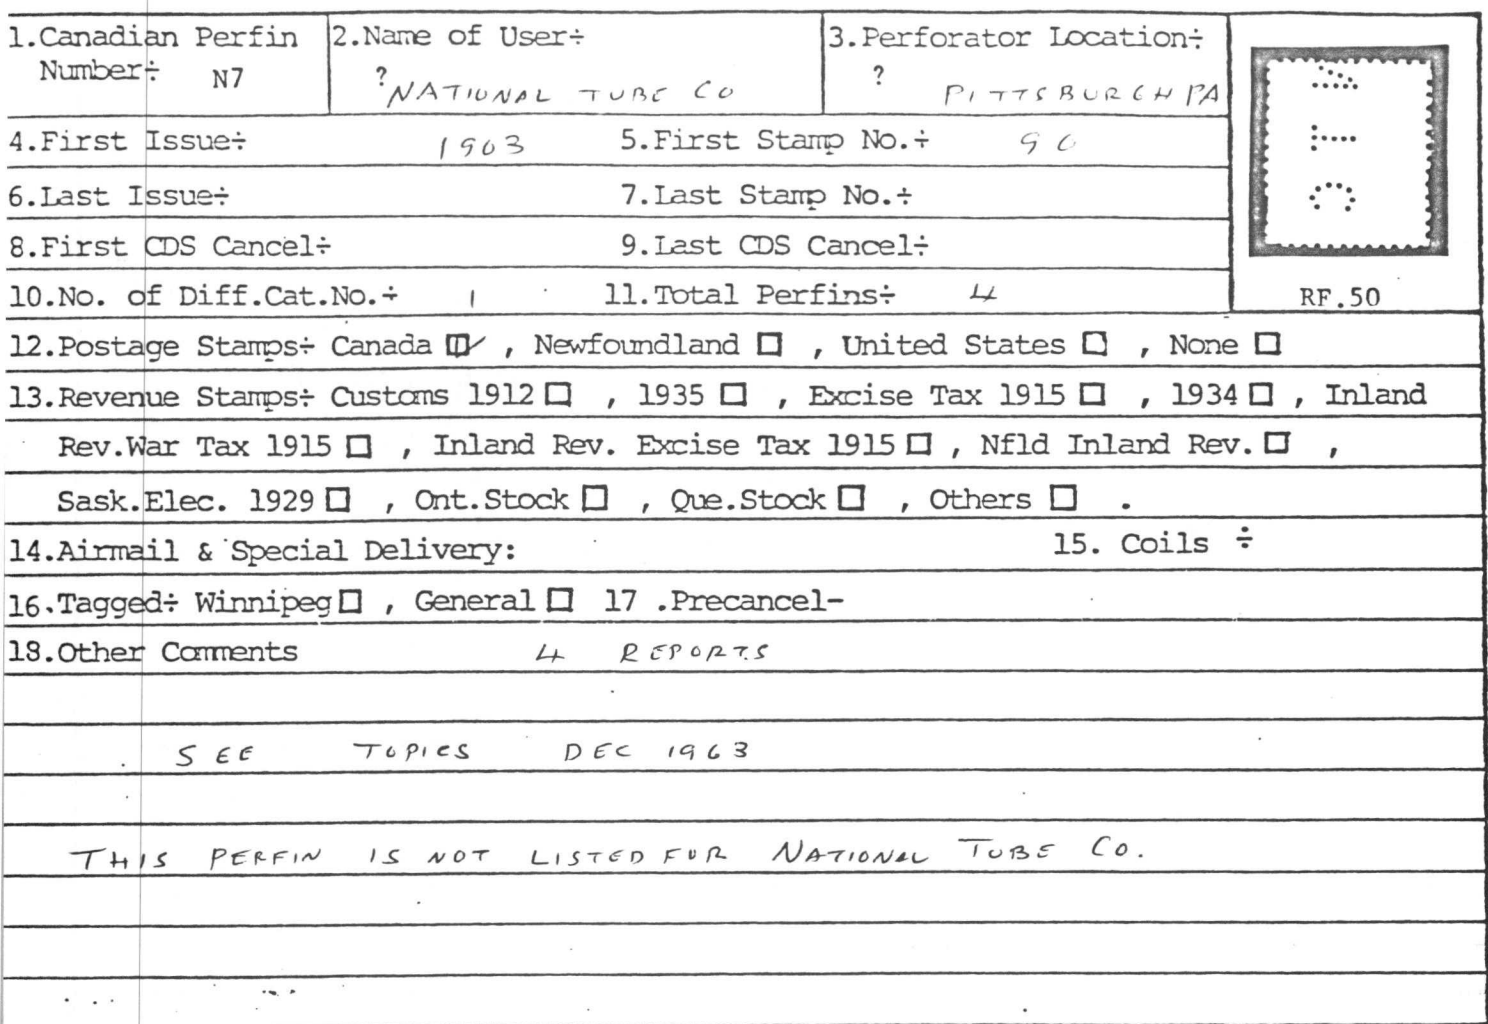 1.Canadian Perfin Number÷ N7
2.Name of User÷ ? NATIONAL TUBE CO
3.Perforator Location÷ ? PITTSBURGH PA
N T C
RF.50
4.First Issue÷ 1903 5.First Stamp No.÷ 90
6.Last Issue÷ 7.Last Stamp No.÷
8.First CDS Cancel÷ 9.Last CDS Cancel÷
10.No. of Diff.Cat.No.÷ 1 11.Total Perfins÷ 4
12.Postage Stamps÷ Canada ☑ , Newfoundland □ , United States □ , None □
13.Revenue Stamps÷ Customs 1912 □ , 1935 □ , Excise Tax 1915 □ , 1934 □ , Inland
Rev.War Tax 1915 □ , Inland Rev. Excise Tax 1915 □ , Nfld Inland Rev. □ ,
Sask.Elec. 1929 □ , Ont.Stock □ , Que.Stock □ , Others □ .
14.Airmail & Special Delivery: 15. Coils ÷
16.Tagged÷ Winnipeg □ , General □ 17 .Precancel-
18.Other Comments 4 REPORTS
SEE TOPICS DEC 1963
THIS PERFIN IS NOT LISTED FOR NATIONAL TUBE CO.